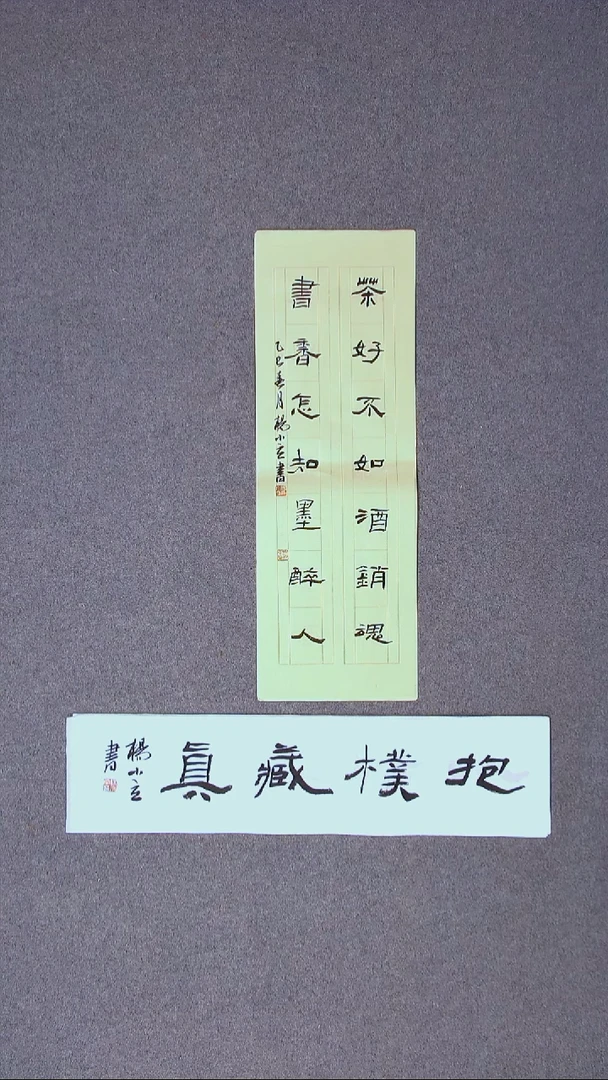 茶好不如酒銷魂
書香怎知墨醉人
乙巳春月楊小立書
抱樸藏真
楊小立
書